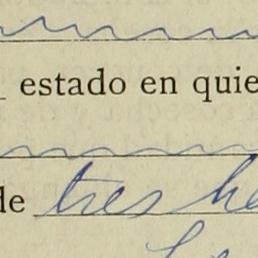 estado en quie
de tres he